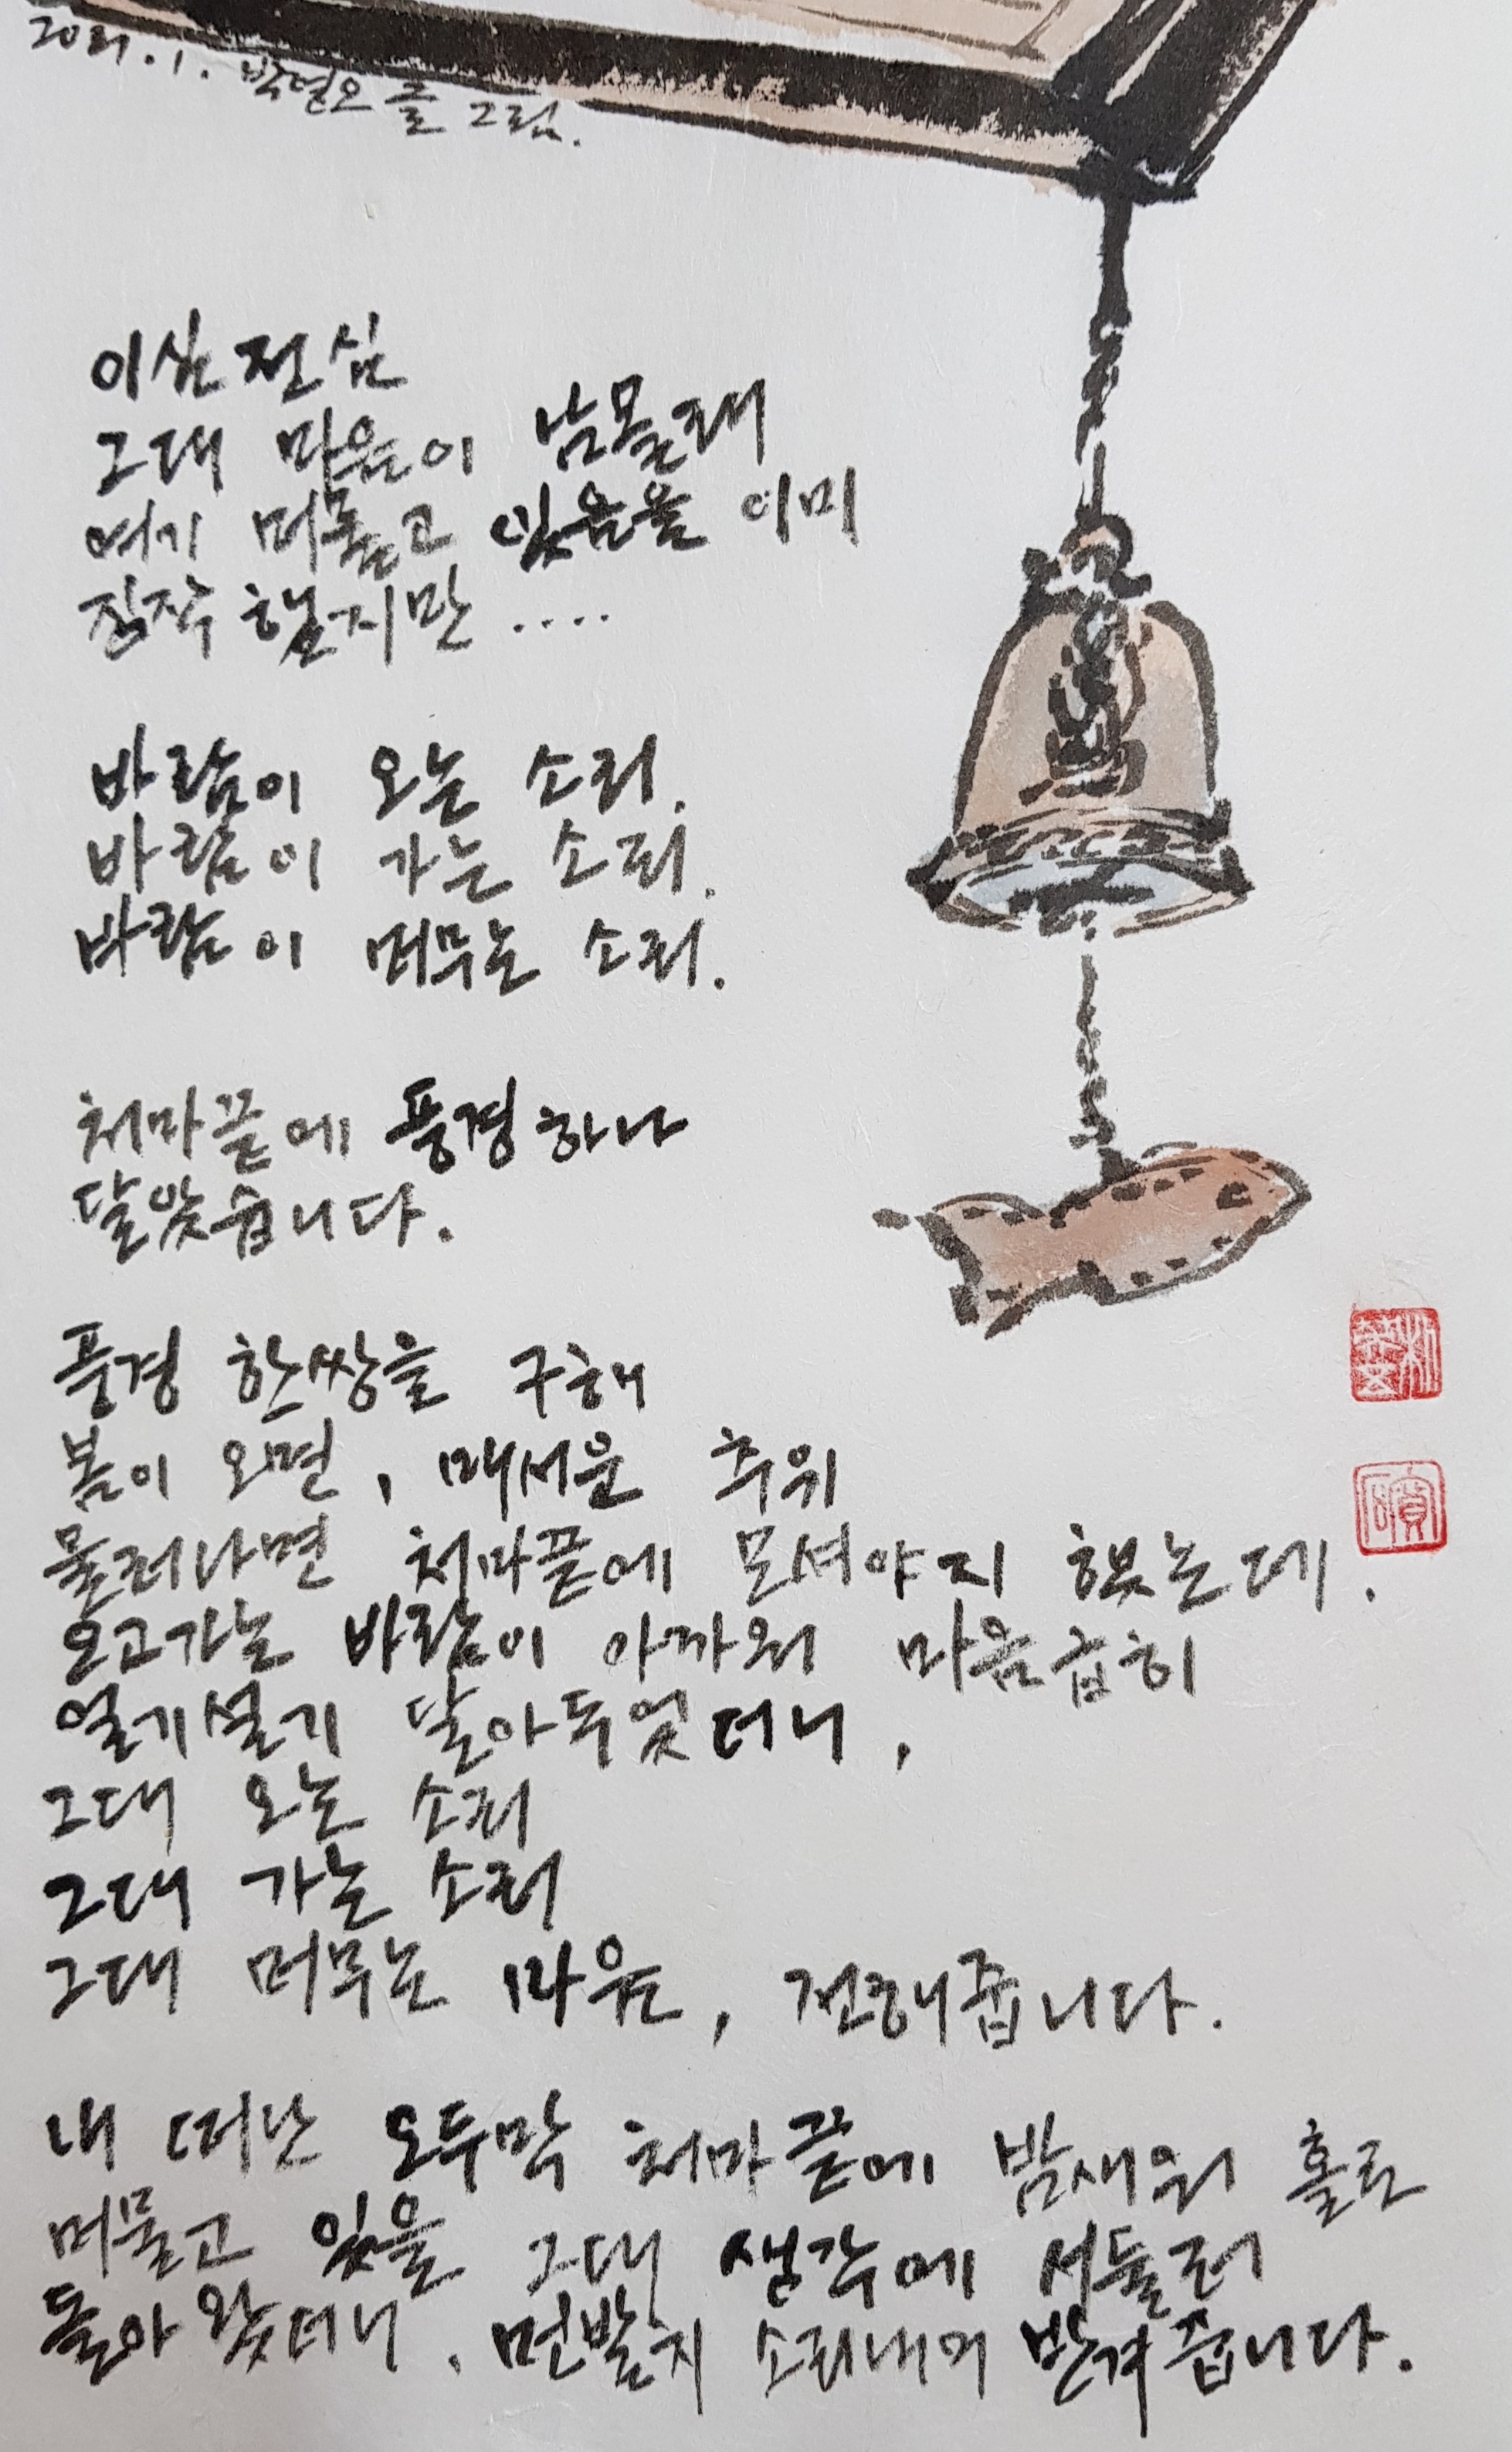 2021.1. 박영오 글 그림.
이심전심
그대 마음이 남몰래
여기 머물고 있음을 이미
짐작 했지만 ....
바람이 오는 소리.
바람이 가는 소리.
바람이 머무는 소리.
처마끝에 풍경하나
달았습니다.
풍경 한쌍을 구해
봄이 오면, 매서운 추위
물러나면 처마끝에 모셔야지 했는데.
오고가는 바람이 아까워 마음급히
얼기설기 달아두었더니,
그대 오는 소리
그대 가는 소리
그대 머무는 마음, 전해줍니다.
내 떠난 오두막 처마끝에 밤새워 홀로
머물고 있을 그대 생각에 서둘러
돌아왔더니, 먼발치 소리내어 반겨줍니다.